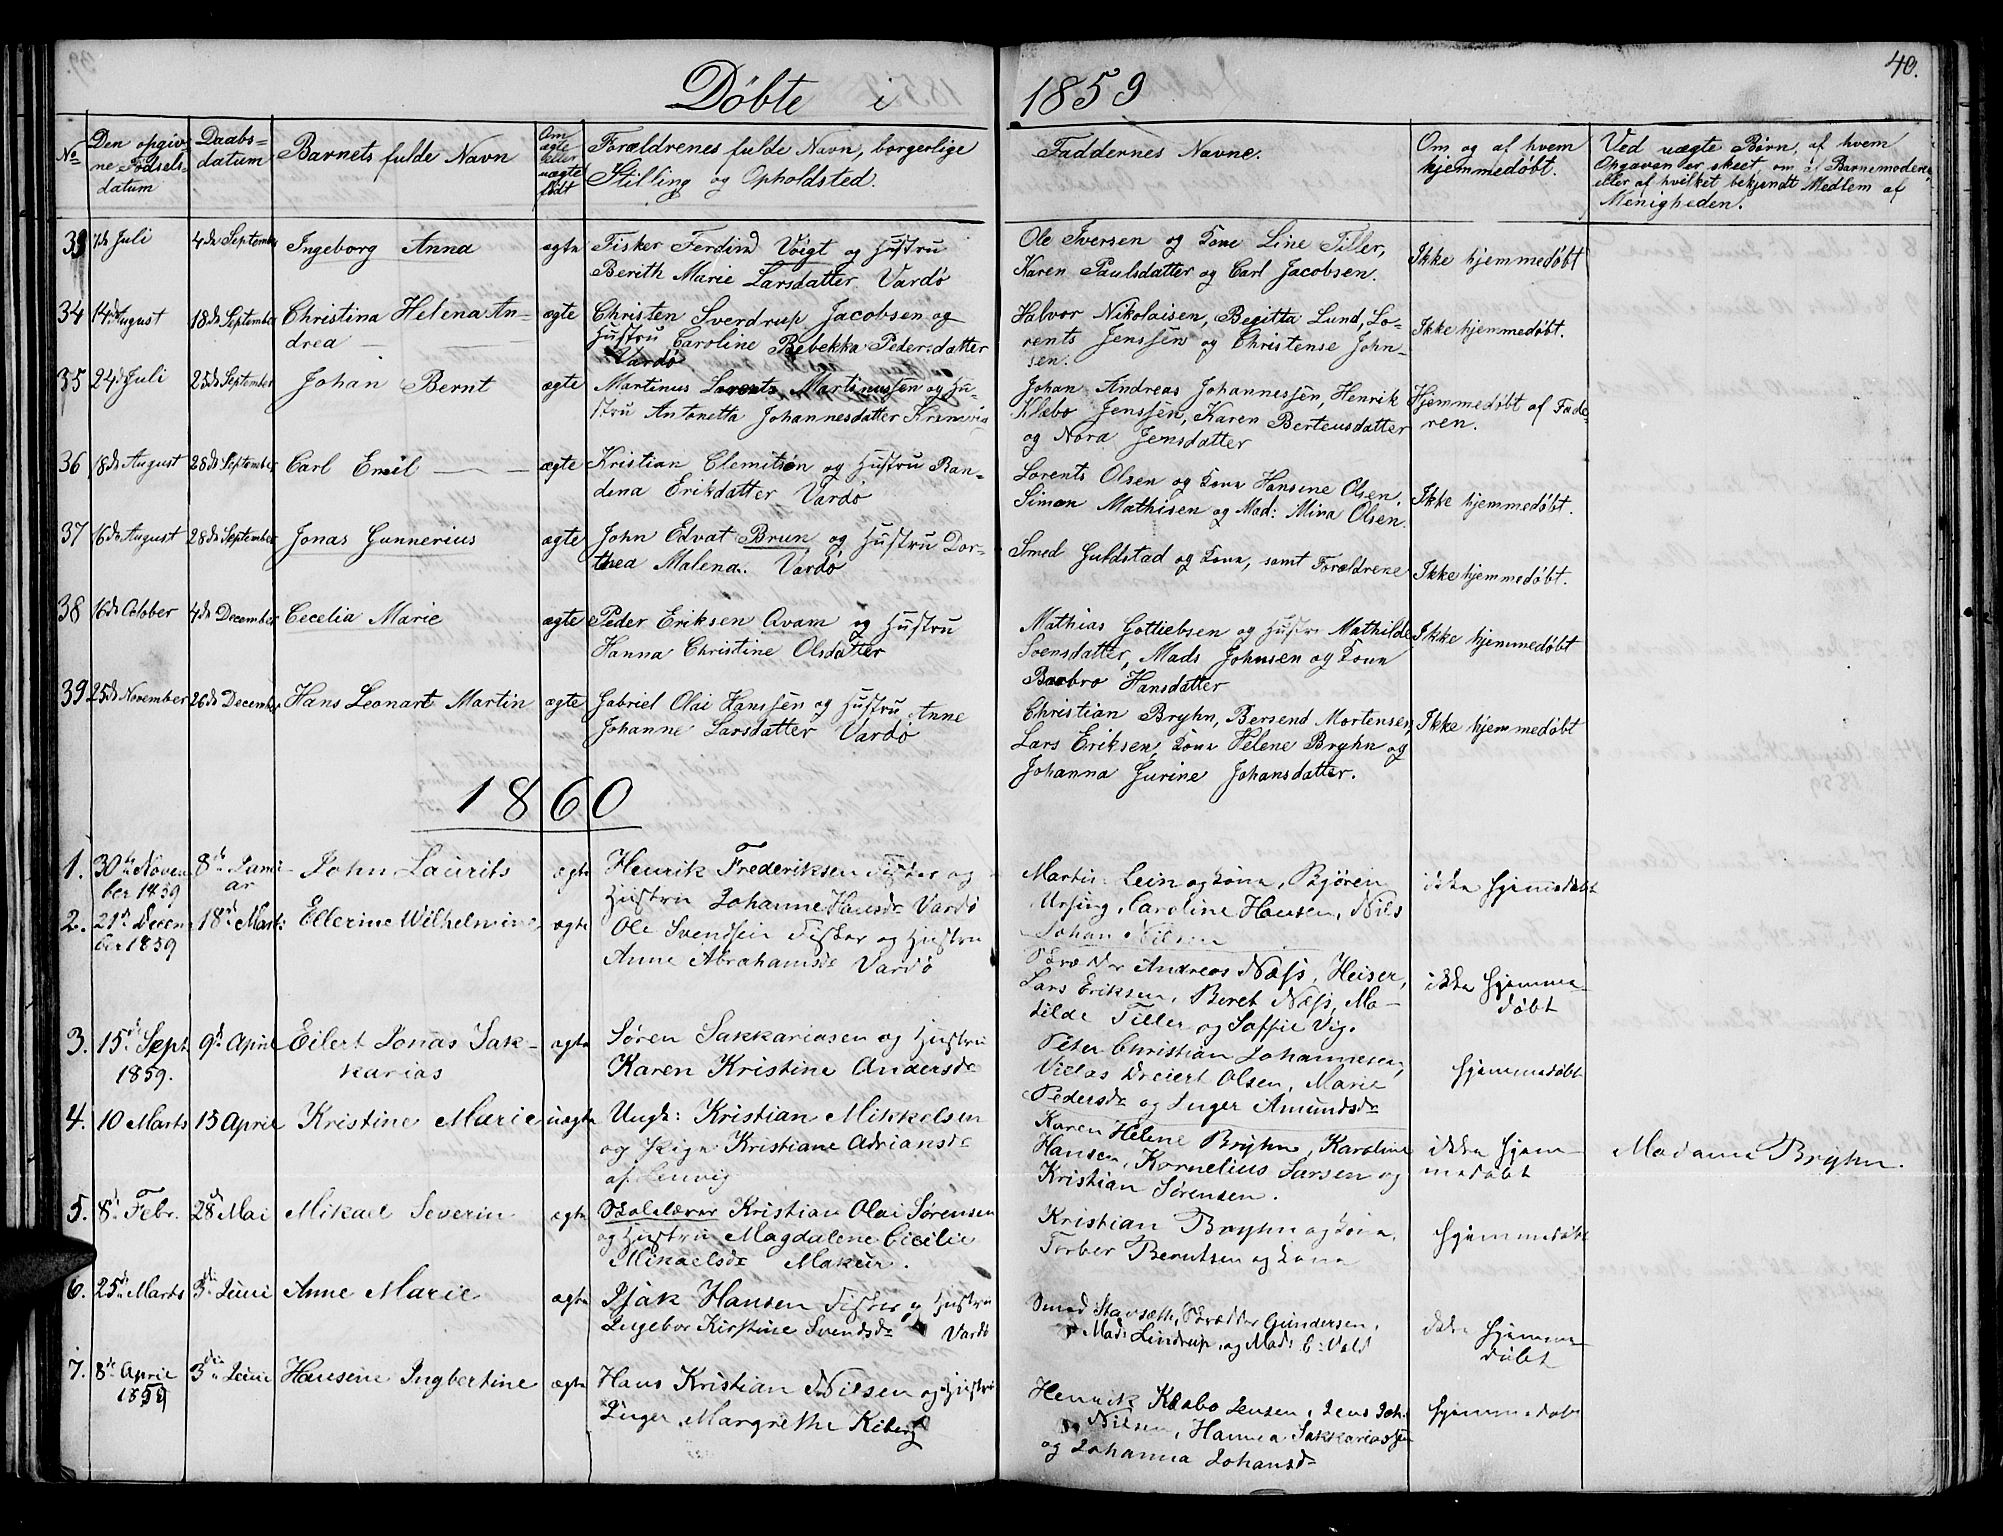 Døbte i 1859
40.
No
Den opgiv-
ne Fødsels-
datum
Daabs-
datum
Barnets fulde Navn
Om
ægte
eller
uægte
født
Forældrenes fulde Navn, borgerlige
Stilling og Opholdsted.
Faddernes Navne.
Om og af hvem
hjemmedøbt.
Ved uægte Børn, af hvem
Opgaven er skeet, om af Barnemoderen
eller af hvilket bekjendt Medlem af
Menigheden.
33 7de Juli 4de September Ingeborg Anna ægte Fisker Ferdind Voigt og Hustru
Berith Marie Larsdatter Vardø
Ole Iversen og Kone Line Tiller,
Karen Paulsdatter og Carl Jacobsen.
Ikke hjemmedøbt
34 14de August 18de September Christina Helena An-
drea
ægte Christen Sverdrup Jacobsen og
Hustru Caroline Rebekka Pedersdatter
Vardø
Halvor Nikolaisen, Begitta Lund, Lo-
rents Jenssen og Christense John-
sen.
Ikke hjemmedøbt.
35 24de Juli 25de September Johan Bernt ægte Martinus Lorents Martinussen og Hu-
stru Antonetta Johannesdatter
Johan Andreas Johannessen, Henrik
Klæbo Jenssen, Karen Berteusdatter
og Nora Jensdatter
Hjemmedøbt af Fade-
ren.
36 18de August 28de September Carl Emil ægte Kristian Clemitsøn og Hustru Ran-
dina Eriksdatter Vardø
Lorents Olsen og Kone Hansine Olsen,
Simon Mathisen og Mad: Mina Olsen.
Ikke hjemmedøbt.
37 16de August 28de September Jonas Gunnerius ægte John Edvat Brun og Hustru Dor-
thea Malena. Vardø
Smed Guldstad og Kone, samt Forældrene
Ikke hjemmedøbt.
38 16de October 4de December Cecelia Marie ægte Peder Eriksen Qvam og Hustru
Hanna Christine Olsdatter
Mathias Gottlebsen og Hustru Mathilde
Svensdatter, Mads Johnsen og Kone
Barbro Hansdatter
Ikke hjemmedøbt
39 25de November 26de December Hans Leonart Martin ægte Gabriel Olai Hanssen og Hustru Anne
Johanne Larsdatter Vardø
Christian Bryhn, Bersend Mortensen,
Lars Eriksen, Kone Helene Bryhn og
Johanna Gurine Johansdatter.
Ikke hjemmedøbt
1860
1. 30te Novem
ber 1859
8de Janu
ar
John Laurits ægte Henrik Frederiksen Fisker og
Hustru Johanne Hansdr Vardø
Martin Lein og Kone, Björen
Ursing, Caroline Hansen, Nils
Johan Nilsen
ikke hjemmedøbt
2. 21de Decem
ber 1859
18de Marts Ellerine Wilhelmine, ægte Ole Svendsen Fisker og Hustru
Anne Abrahamsdr Vardø
Skrædder Andreas Næss, Heiser,
Lars Eriksen, Beret Næss, Ma-
tilde Tiller og Soffie Vig.
ikke hjemme-
døbt
3. 15de Sept
1859.
9de April Eilert Jonas Sak-
karias
ægte Søren Sakkariasen og Hustru
Karen Kristine Andersdr
Peter Christian Johannesen,
Niclas Dreiert Olsen, Marie
Pedersdr og Inger Amundsdr
hjemmedøbt
4. 10 Marts 15 April Kristine Marie uægte Ungk: Kristian Mikkelsen
og Pige Kristiane Adriansdr
af Lenvig
Karen Helene Bryhn, Karoline
Hansen, Kornelius Larsen og
Kristian Sørensen.
ikke hjem-
medøbt
Madame Bryhn.
5. 8de Febr. 28de Mai Mikael Severin ægte Skolelærer Kristian Olai Sørensen
og Hustru Magdalene Cicilie
Mikaelsdr Makur.
Kristian Bryhn og Kone,
Torber Berntsen og Kone
hjemmedøbt
6. 25de Marts 3die Juni Anne Marie ægte Isak Hansen Fisker og Hustru
Ingebor Kirstine Svendsdr Vardø
Smed Stavsæth, Skrædder Gundersen,
Mad: Lindrup, og Mad:
ikke hjemme
døbt
7. 8de April
1859
3die Juni Hansine Ingbertine ægte Hans Kristian Nilsen og Hustru
Inger Margrethe Kiberg
Henrik Klæbo Jensen, Jens Joh.
Nilsen, Hanna Sakkariassen
og Johanna Johansdr
hjemmedøbt